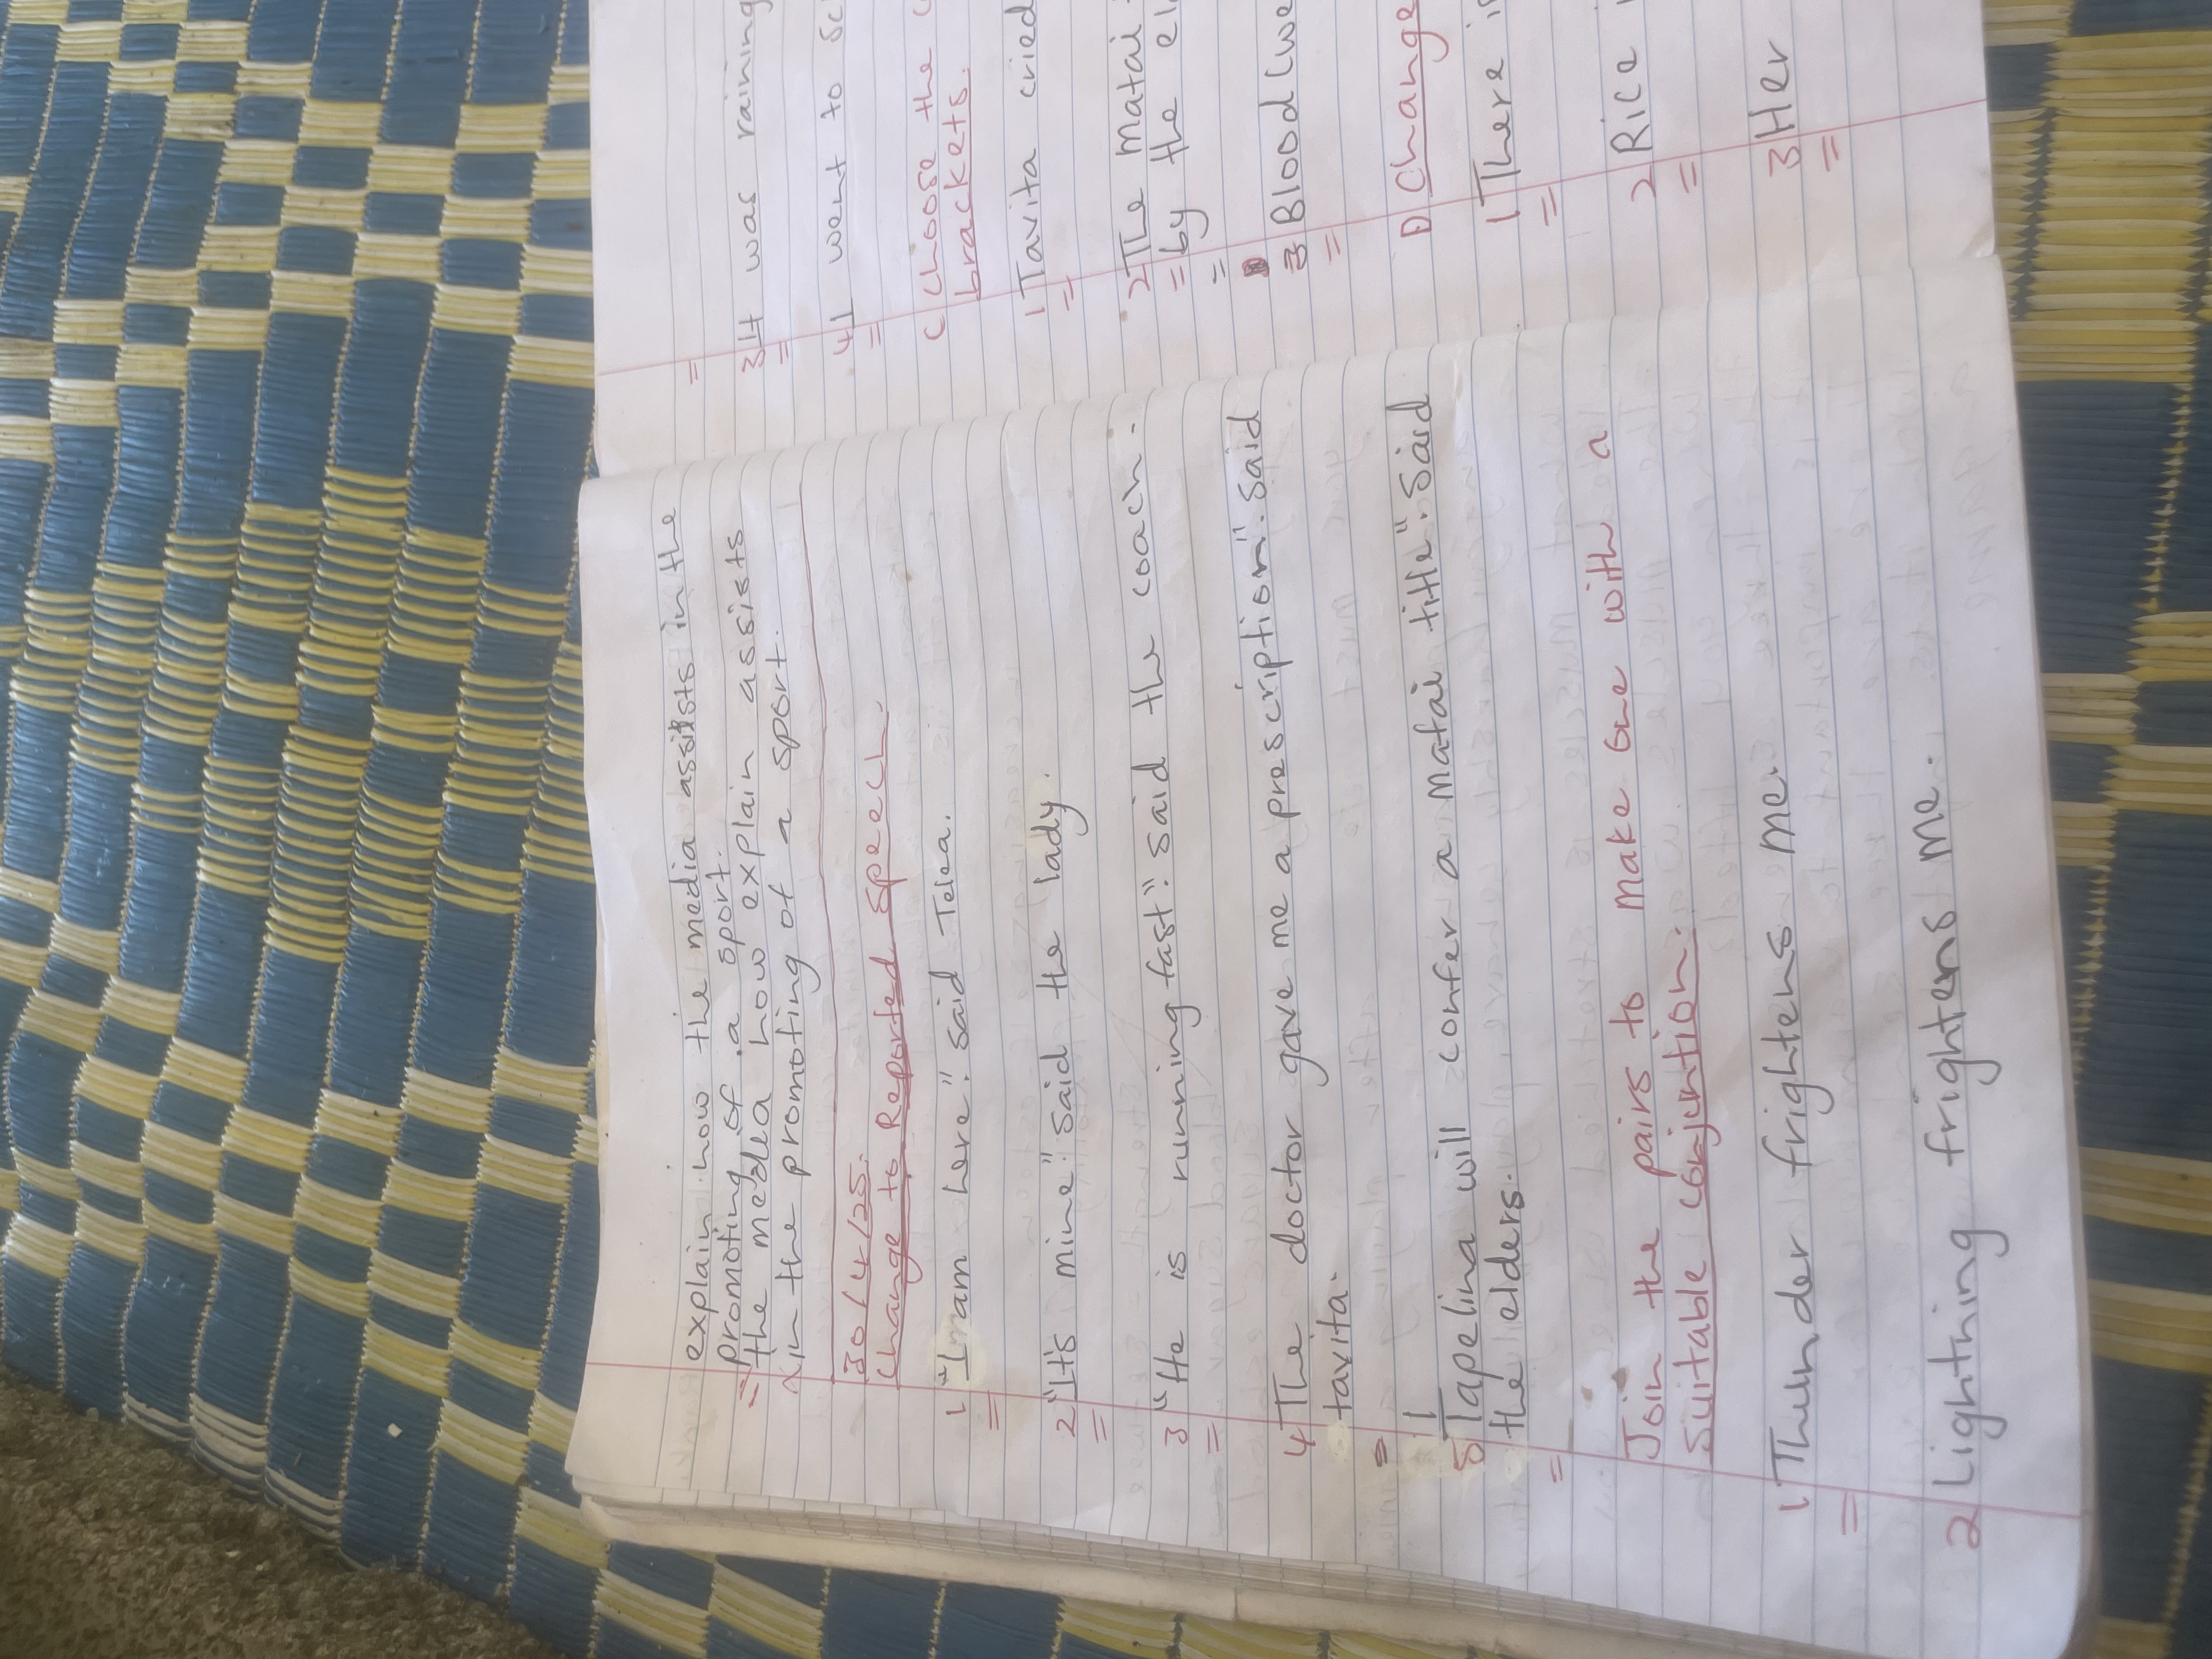 explain how the media assists in the
promoting of a sport.
= the media how explain assists
in the promoting of a sport.
30/4/25.
Change to Reported speech.
1 "I am here". said Telea.
=
2 "It's mine" said the lady.
=
3 "He is running fast". said the coach.
=
4 The doctor gave me a prescription". said
tavita.
=
5 Tapelina will confer a matai title". said
the elders.
=
Join the pairs to make one with a
suitable conjontion.
1 Thunder frightens me.
=
2 Lightning frightens me.
=
3 It was raining
=
4 I went to sc
=
C Choose the c
brackets.
1 Tavita cried
=
2 The matai
= by the el
=
3 Blood (we
=
D Change
1 There i
=
2 Rice
=
3 Her
=